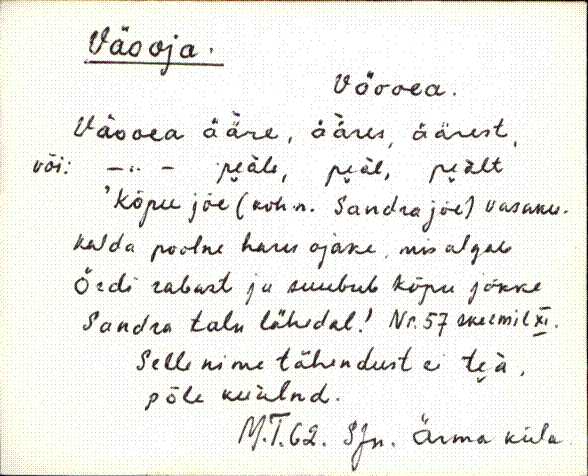 Väsoja.
Võsoea.
Väsoea ääre, ääres, äärest,
või: —„— peäle, peäl, peält
'Kõpu jõe (koh n. Sandra jõe) vasaku-
kalda poolne haru ojake, mis algab
Ördi rabast ja suubub Kõpu jõkke
Sandra talu lähedal! Nr. 57 skeemil XI.
Selle nime tähendust ei teja,
põle kuulnd.
M.T. 62. SJn. Ärma küla